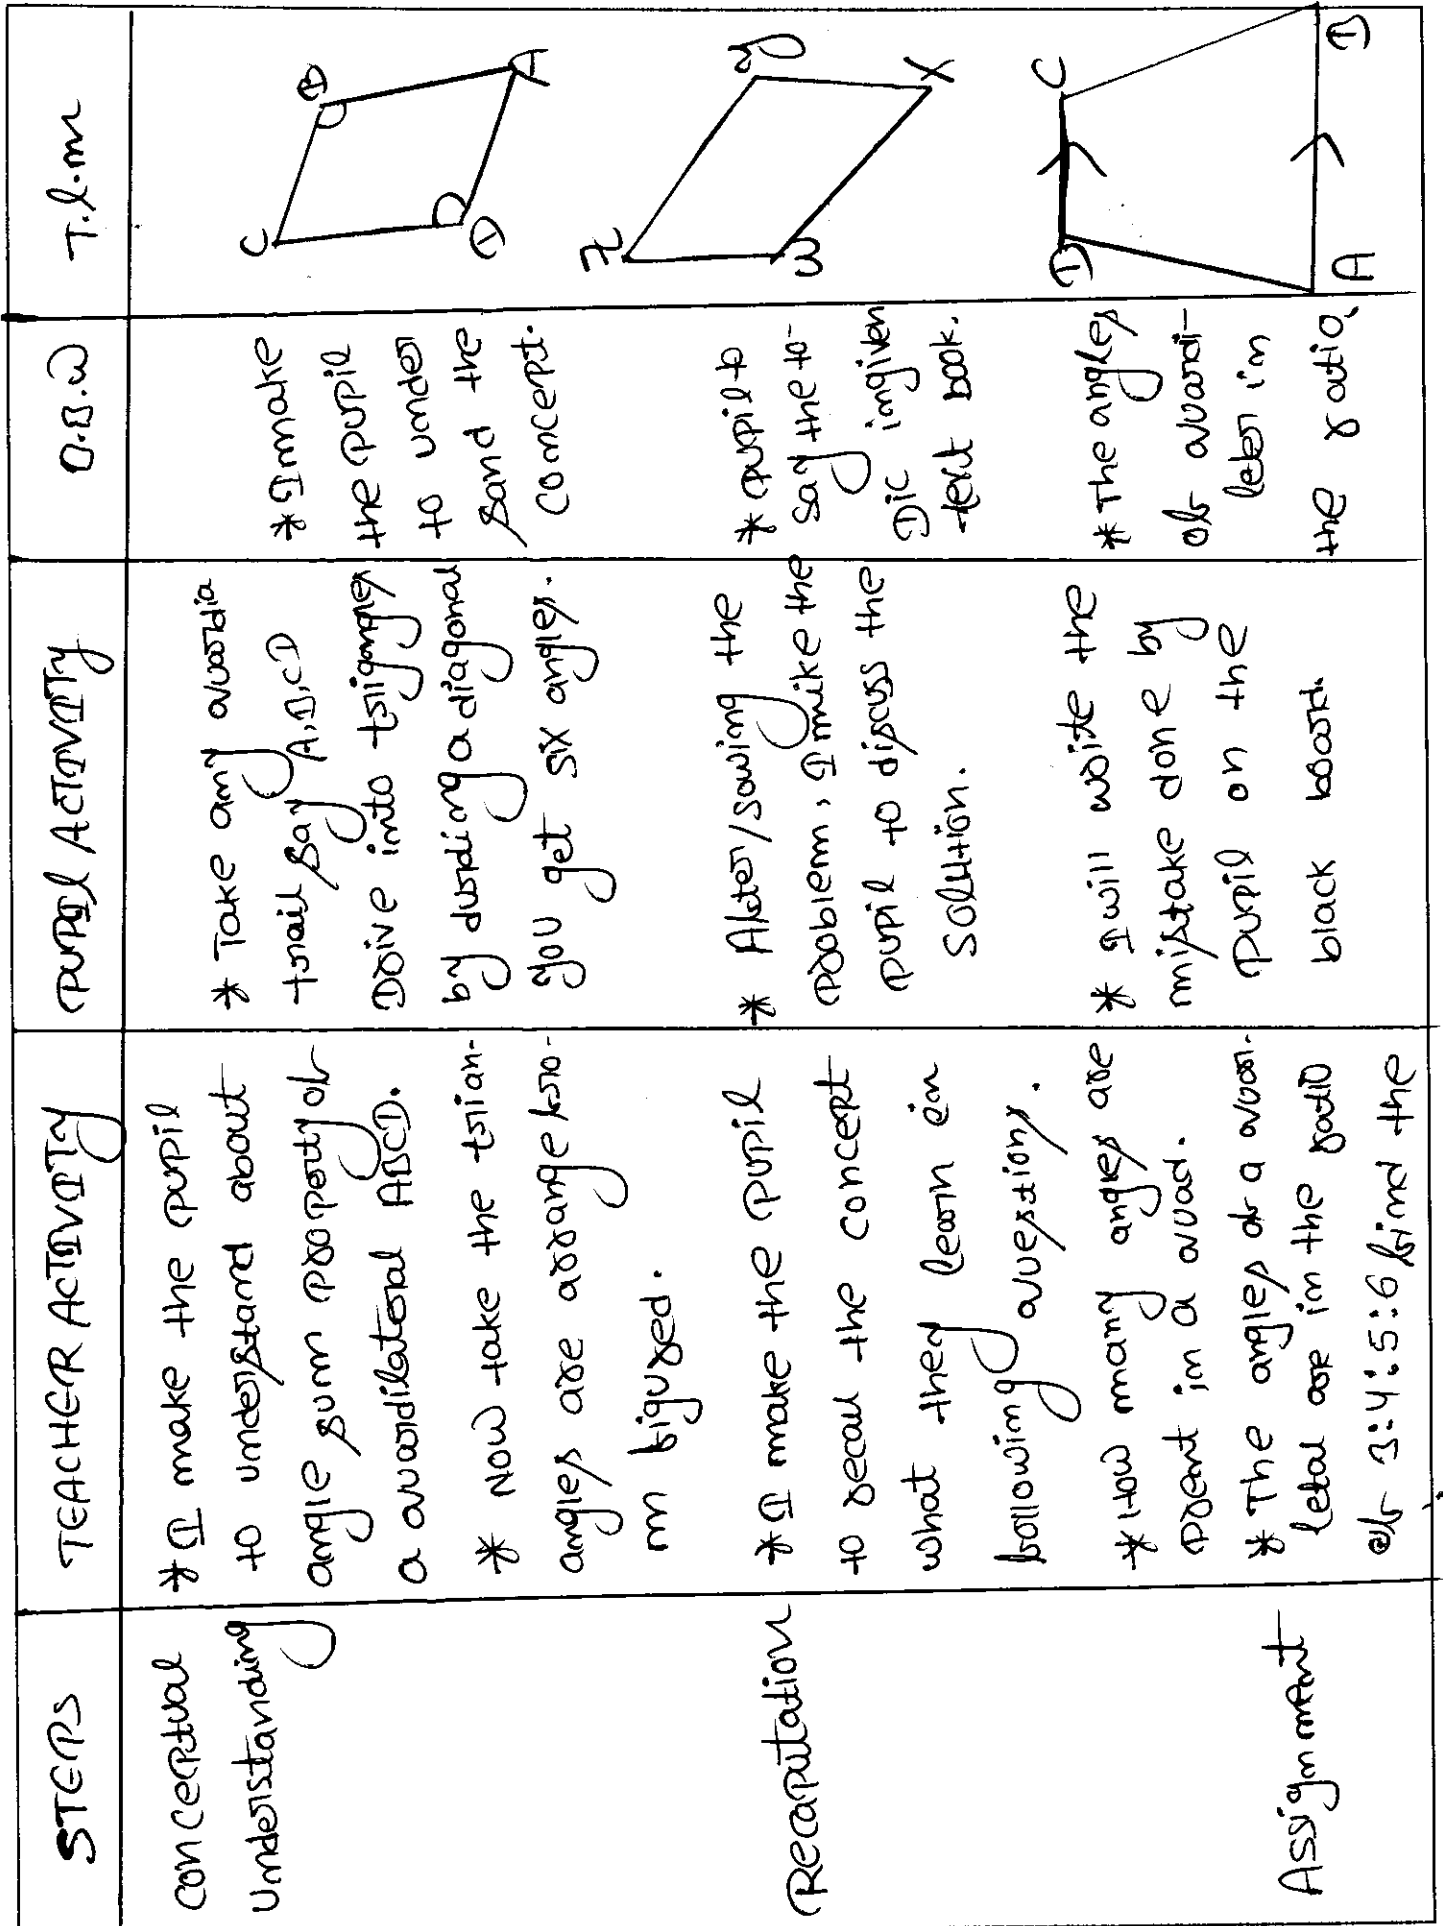 STEPS
TEACHER ACTIVITY
PUPIL ACTIVITY
O.B.W
T.l.m
conceptual
Understanding
* I make the pupil
to understand about
angle sum property of
a quardilateral ABCD.
* Now take the trian-
angles are arrange fro-
m figured.
* Take any quardia
trail say A,B,CD
Drive into triangles
by durding a diagonal
you get six angles.
* I make
the pupil
to under
sand the
concept.
C
B
D
A
Recaputation
* I make the pupil
to recall the concept
what they learn in
following questions.
* How many angles are
prent in a quad.
* After/sowing the
problem, I mike the
pupil to discuss the
solution.
* pupil to
say the to-
Dic ingiven
text book.
Z
y
W
X
Assignment
* The angles of a quar.
letal are in the ratio
of 3:4:5:6 find the
* I will write the
mistake done by
pupil on the
black board.
* The angles
of quardi-
leter in
the ratio,
D
C
A
B